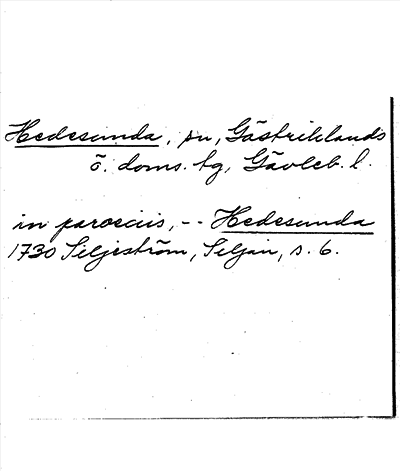 Hedesunda, sn, Gästriklands
ö. doms. tg, Gävleb. l.
in paroeciis, -- Hedesunda
1730 Siljeström, Siljan, s. 6.